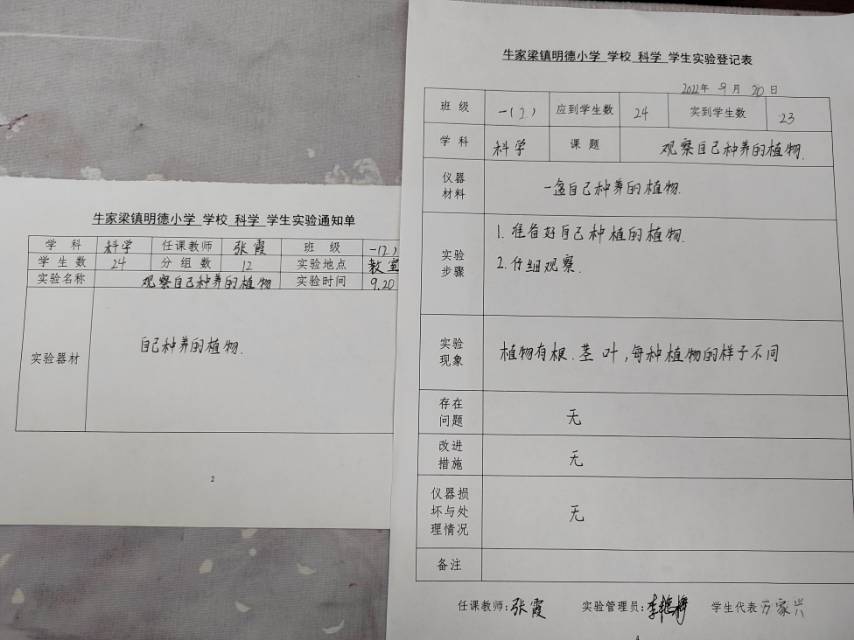 牛家梁镇明德小学 学校 科学 学生实验通知单
学 科 科学 任课教师 张霞 班 级 一(2)
学 生 数 24 分 组 数 12 实验地点 教室
实验名称 观察自己种养的植物 实验时间 9.20
实验器材 自己种养的植物.
2
牛家梁镇明德小学 学校 科学 学生实验登记表
2022年 9月 20日
班 级 一(2) 应到学生数 24 实到学生数 23
学 科 科学 课 题 观察自己种养的植物.
仪器材料 一盆自己种养的植物.
实验步骤 1.准备好自己种植的植物.
2.仔细观察.
实验现象 植物有根.茎 叶,每种植物的样子不同
存在问题 无
改进措施 无
仪器损坏与处理情况 无
备注
任课教师:张霞 实验管理员:李 学生代表 万家兴